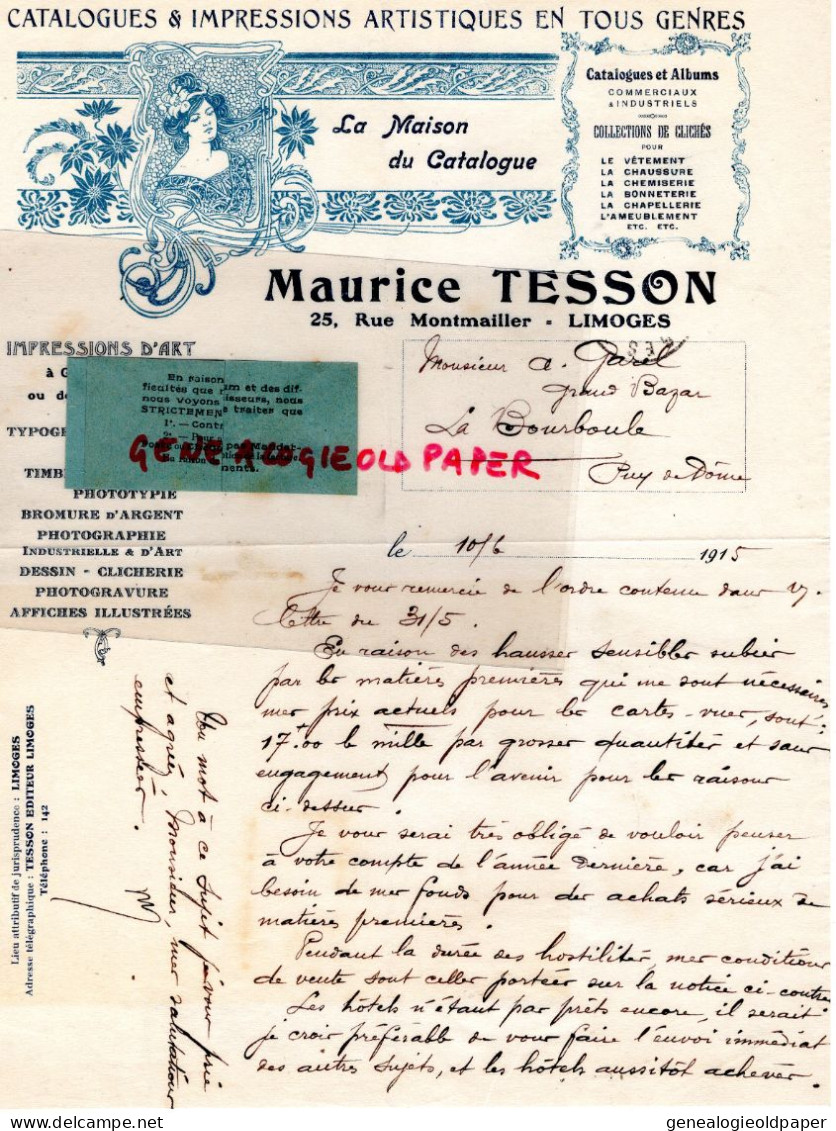 CATALOGUES & IMPRESSIONS ARTISTIQUES EN TOUS GENRES
La Maison
du Catalogue
Catalogues et Albums
COMMERCIAUX
& INDUSTRIELS
COLLECTIONS DE CLICHÉS
POUR
LE VÊTEMENT
LA CHAUSSURE
LA CHEMISERIE
LA BONNETERIE
LA CHAPELLERIE
L'AMEUBLEMENT
ETC. ETC.
Maurice TESSON
25, Rue Montmailler - LIMOGES
IMPRESSIONS D'ART
à
ou de
TYPOG
TIMB
PHOTOTYPIE
BROMURE D'ARGENT
PHOTOGRAPHIE
INDUSTRIELLE & D'ART
DESSIN - CLICHERIE
PHOTOGRAVURE
AFFICHES ILLUSTRÉES
En raison um et des dif-
ficultés que isseurs, nous
nous voyons
STRICTEMEN s traites que
1º. — Cont
GENEALOGIE OLD PAPER
Monsieur A. Garel
Grand Bazar
La Bourboule
Puy de Dôme
le 10/6 1915
Je vous remercie de l'ordre contenu dans v.
lettre du 31/5.
En raison des hausses sensibles subies
par les matières premières qui me sont nécessaires
mes prix actuels pour les cartes-vues, sont :
17f.00 le mille par grosses quantités et sans
engagement pour l'avenir pour les raisons
ci-dessus.
Je vous serai très obligé de vouloir penser
à votre compte de l'année dernière, car j'ai
besoin de mes fonds pour des achats sérieux de
matières premières.
Pendant la durée des hostilités, mes conditions
de vente sont celles portées sur la notice ci-contre
Les hôtels n'étant pas prêts encore, il serait
je crois préférable de vous faire l'envoi immédiat
des autres sujets, et les hôtels aussitôt achevés.
Un mot à ce sujet je vous prie
et agréez, Monsieur, mes salutations
empressées.
Lieu attributif de jurisprudence : LIMOGES
Adresse télégraphique : TESSON EDITEUR LIMOGES
Téléphone : 142
genealogieoldpaper